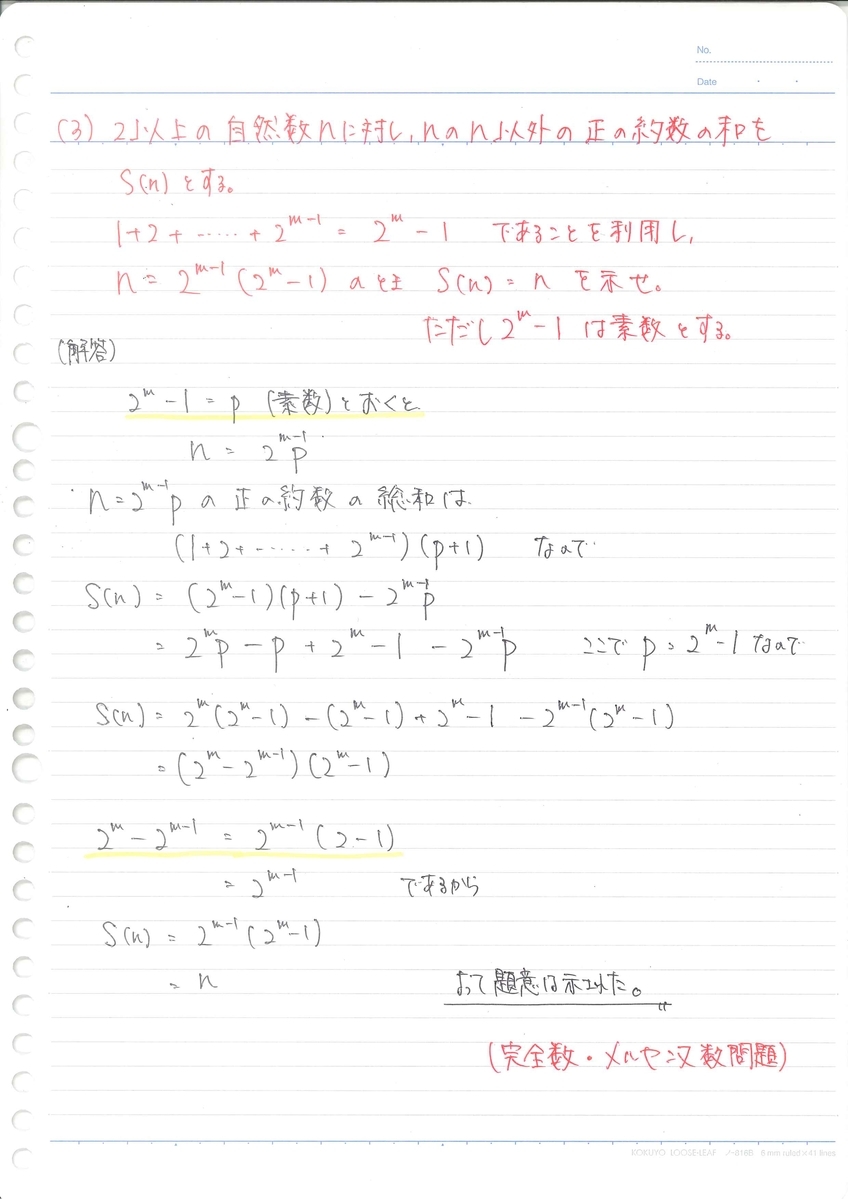 No.
Date
(3) 2以上の自然数nに対し, nのn以外の正の約数の和を
S(n)とする。
1+2+……+2^{m-1} = 2^m - 1 であることを利用し,
n = 2^{m-1}(2^m - 1) のとき S(n) = n を示せ。
ただし 2^m - 1 は素数とする。
(解答)
2^m - 1 = p (素数)とおくと
n = 2^{m-1}p
n = 2^{m-1}p の正の約数の総和は
(1+2+……+2^{m-1})(p+1) なので
S(n) = (2^m - 1)(p+1) - 2^{m-1}p
= 2^m p - p + 2^m - 1 - 2^{m-1}p ここで p = 2^m - 1 なので
S(n) = 2^m(2^m - 1) - (2^m - 1) + 2^m - 1 - 2^{m-1}(2^m - 1)
= (2^m - 2^{m-1})(2^m - 1)
2^m - 2^{m-1} = 2^{m-1}(2 - 1)
= 2^{m-1} であるから
S(n) = 2^{m-1}(2^m - 1)
= n よって題意は示された。
(完全数・メルセンヌ数問題)
KOKUYO LOOSE-LEAF ノ-816B 6 mm ruled×41 lines